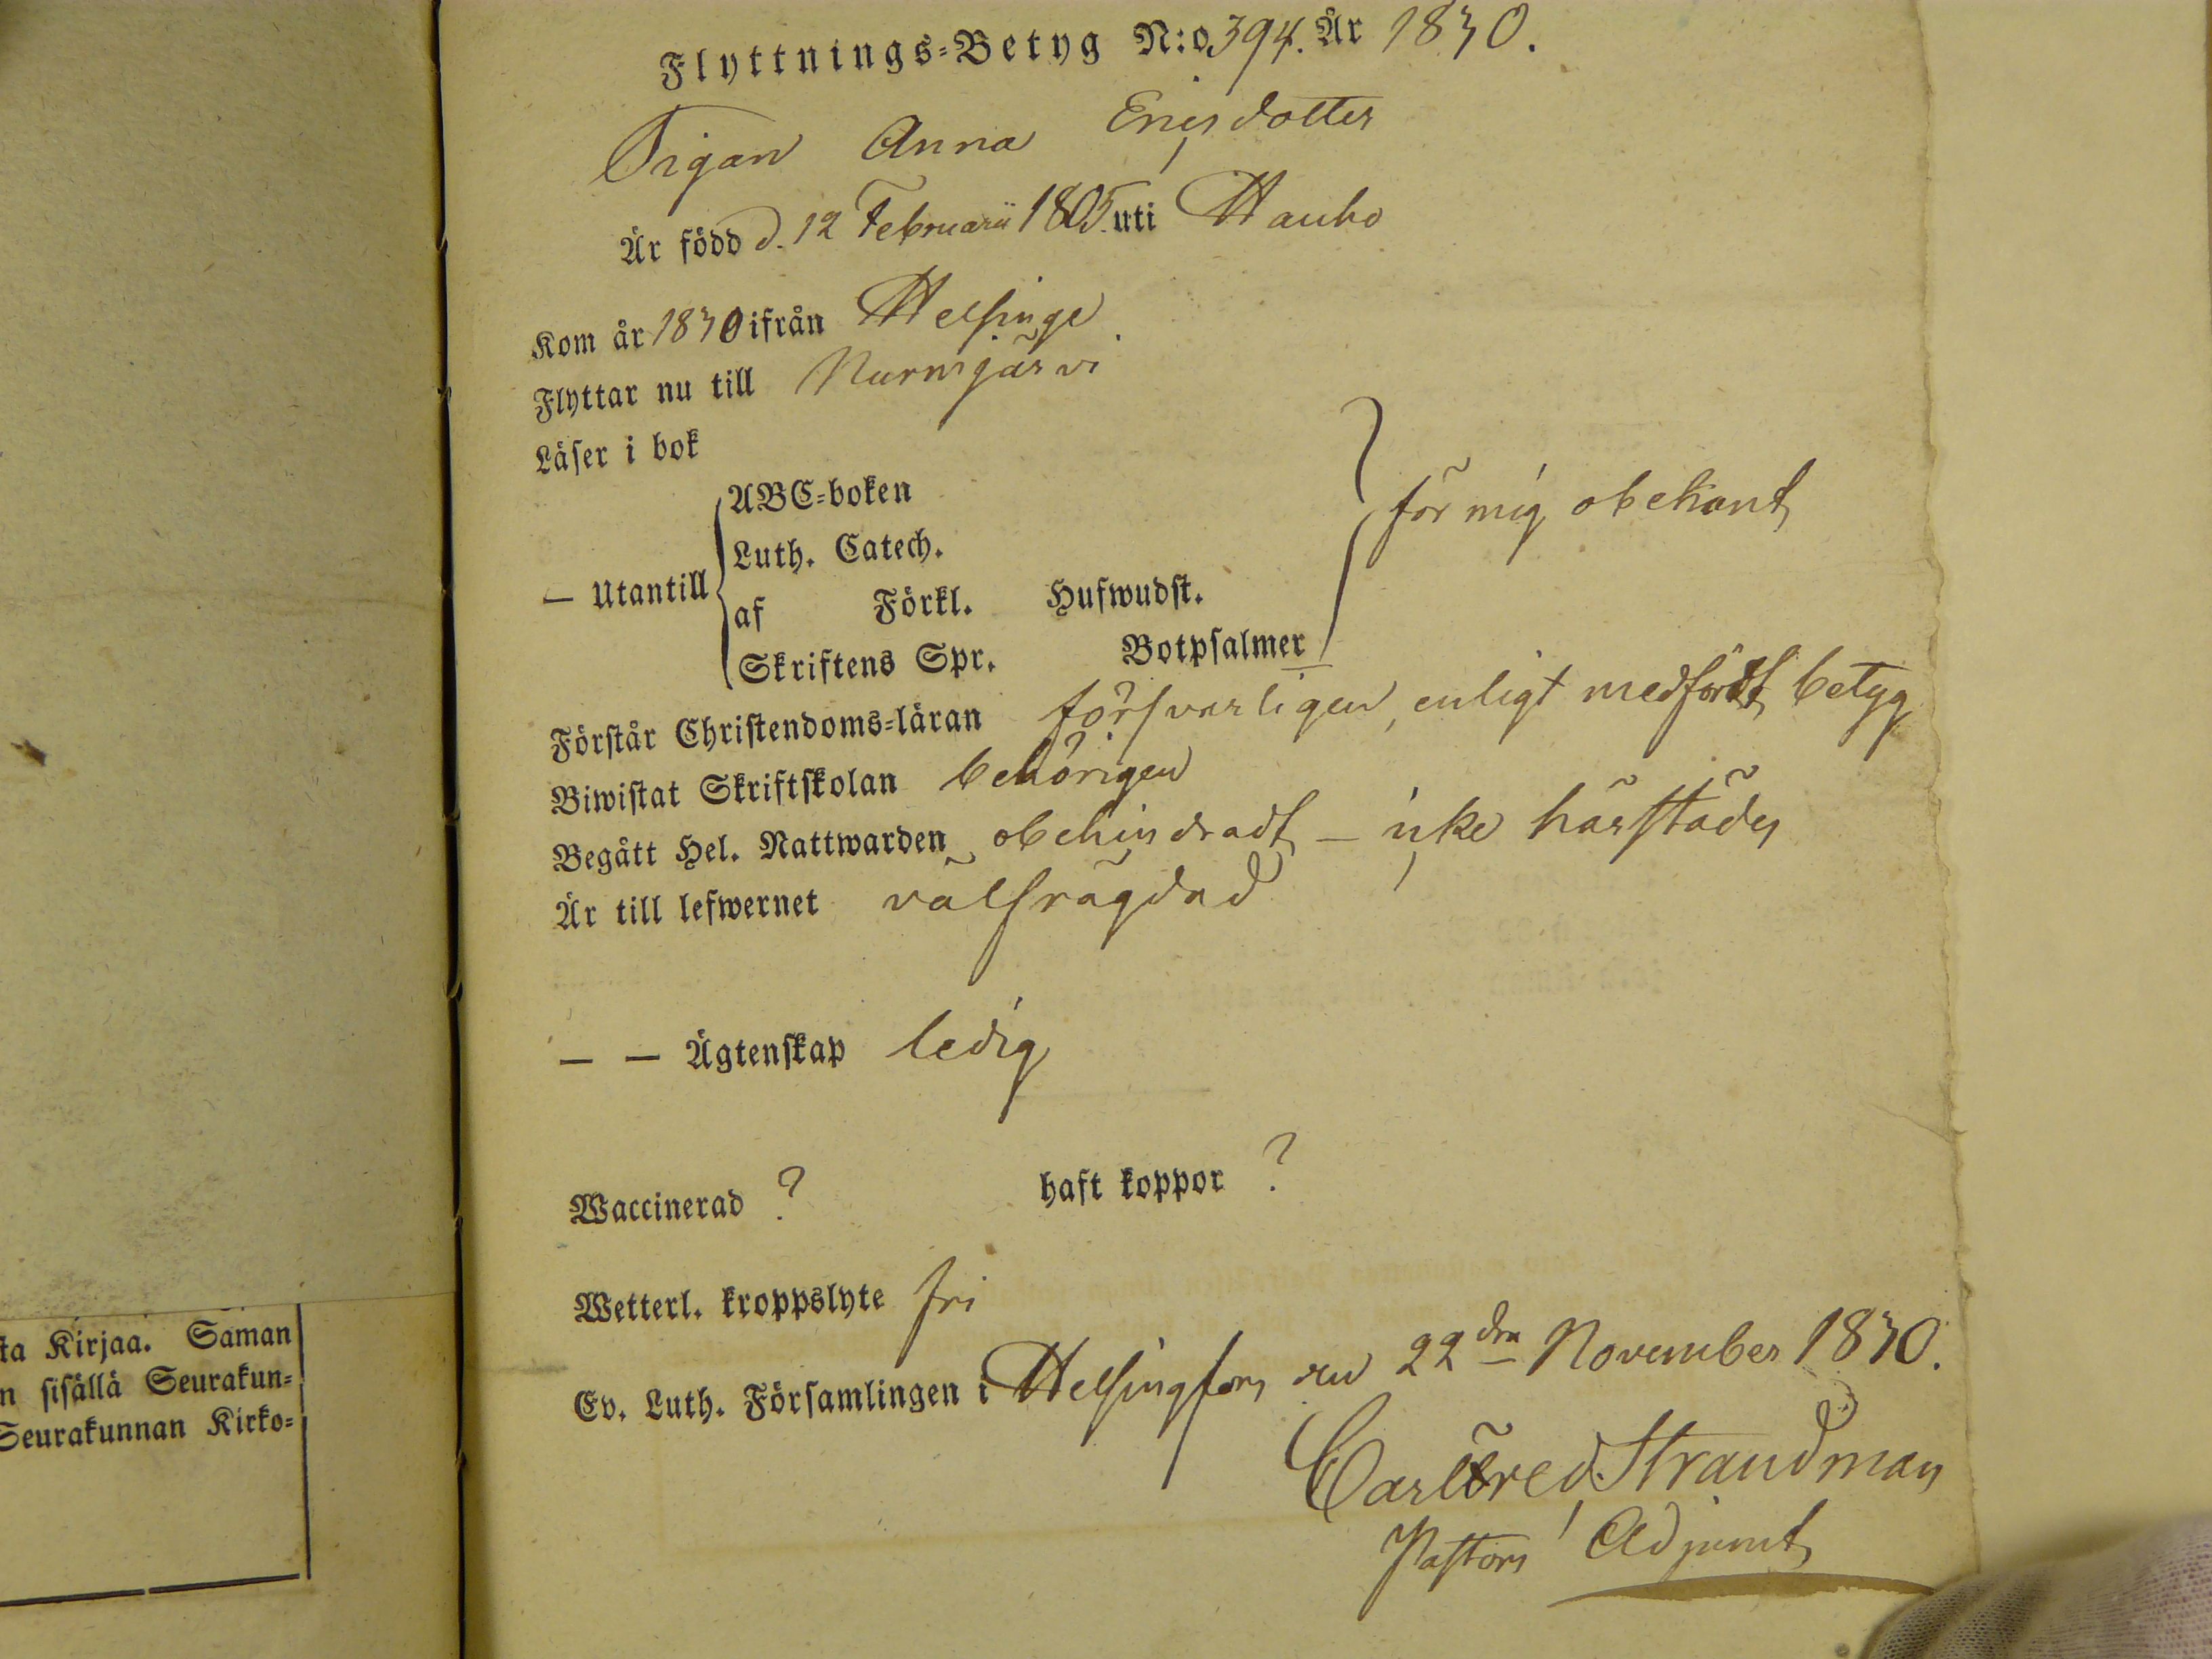 Flyttnings-Betyg N:o 394. År 1830.
Pigan Anna Ericsdotter
Är född d. 12 Februarii 1805. uti Hauho
Kom år 1830 ifrån Helsinge
Flyttar nu till Nurmijärvi
Läser i bok
— Utantill
ABC-boken
Luth. Catech.
af Förkl. Hufwudst.
Skriftens Spr. Botpsalmer
för mig obekant
Förstår Christendoms-läran försvarligen, enligt medfördt betyg
Biwistat Skriftskolan behörigen
Begått Hel. Nattwarden obehindradt — icke härstädes
Är till lefwernet välfrägdad
— — Ägtenskap ledig
Waccinerad ? haft koppor ?
Wetterl. kroppslyte fri
Ev. Luth. Församlingen i Helsingfors den 22dra November 1830.
Carl Fred. Strandman
Pastors Adjunct
ta Kirjaa. Saman
n sisällä Seurakun-
Seurakunnan Kirko-